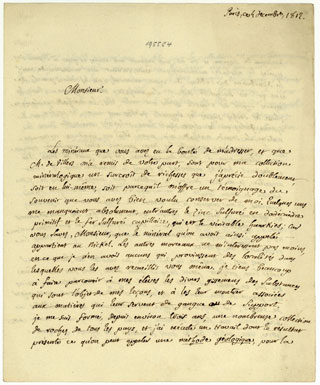 Paris, ce 4 décembre, 1812.
Monsieur,
Les minéraux que vous avez eu la bonté de m'adresser et que
M. de Villers m'a remis de votre part, sont pour ma collection
minéralogique un surcroit de richesses que j'apprécie doublement
soit en lui-même, soit parcequ'il m'offre un témoignage du
souvenir que vous avez bien voulu conserver de moi. Quelques uns
me manquoient absolument, entr'autres le Zinc sulfuré en
primitif et le fer sulfuré capillaire, qui est le véritable haarkies. Car
vous savez, Monsieur, que le minéral qu'on avoit ainsi appelé
appartient au Nickel. Les autres morceaux ne m'intéressent pas moins
en ce que je n'en avois aucuns qui provinssent des localités dans
lesquelles vous les avez recueillis vous même. Je tiens beaucoup
à faire parcourir à mes élèves les divers gisemens des Substances
qui sont l'objet de mes leçons, et à les leur montrer associées
aux matières qui leur servent de gangue ou de Support.
je me suis formé, depuis environ trois ans une nombreuse collection
de roches de tous les pays, et j'ai exécuté un travail dont le résultat
présente ce qu'on peut appeler une méthode géologique, pour la